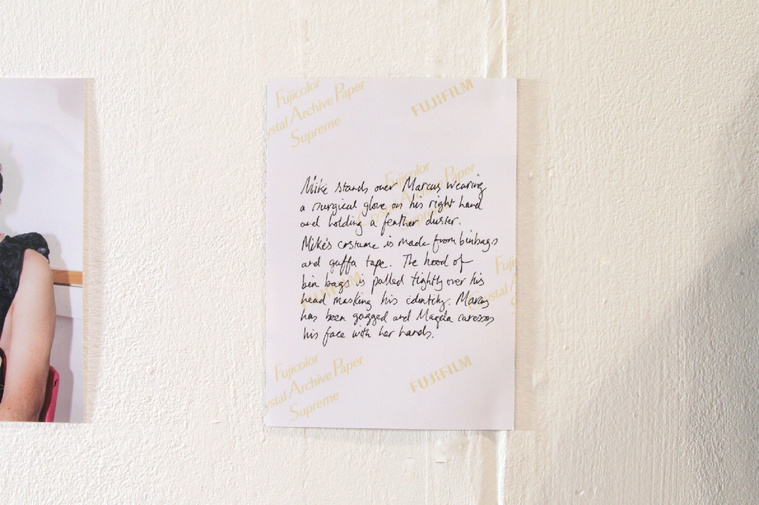 Fujicolor
Crystal Archive Paper
Supreme
FUJIFILM
Mike stands over Marcus wearing
a surgical glove on his right hand
and holding a feather duster.
Mike's costume is made from binbags
and gaffa tape. The hood of
bin bags is pulled tightly over his
head masking his identity. Marcus
has been gagged and Magda caresses
his face with her hands.
Fujicolor
stal Archive Paper
Supreme
FUJIFILM